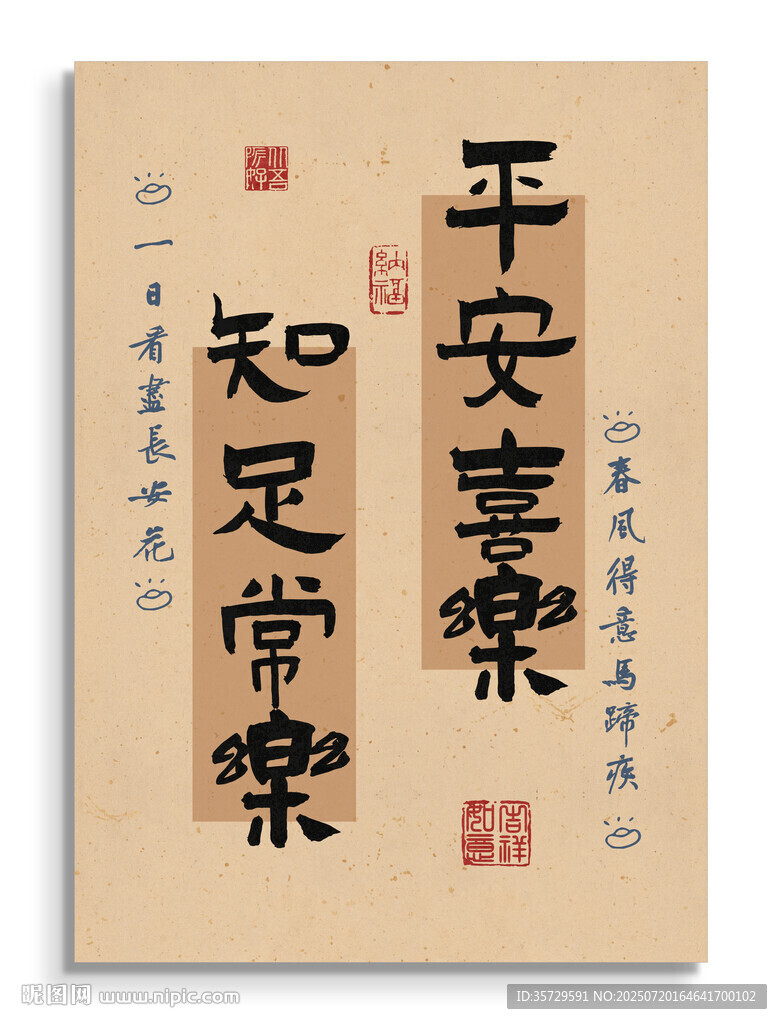 春風得意馬蹄疾
平安喜樂
納福
吉祥如意
知足常樂
一日看盡長安花
昵图网 www.nipic.com
ID:35729591 NO:20250720164641700102